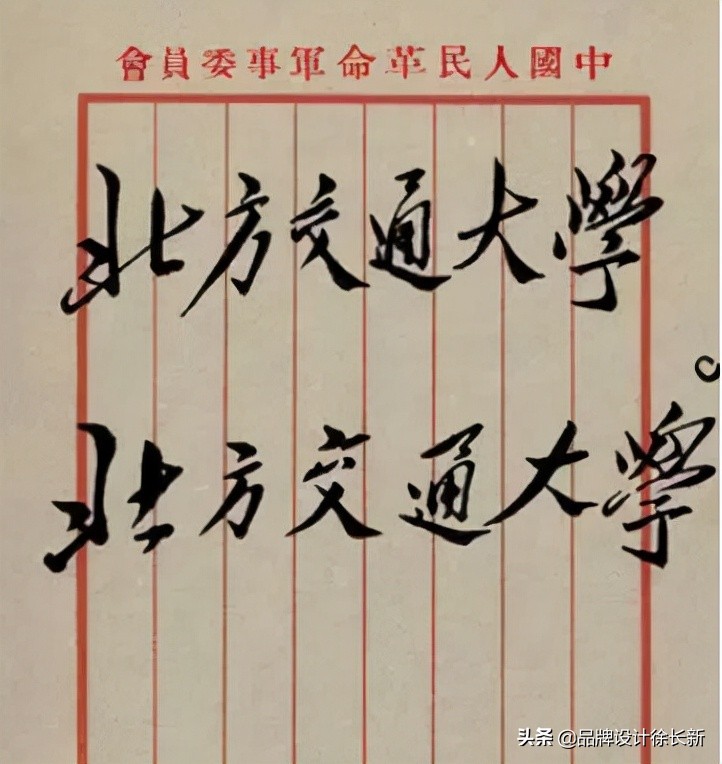 中國人民革命軍事委員會
北方交通大學
北方交通大學
头条 @品牌设计徐长新